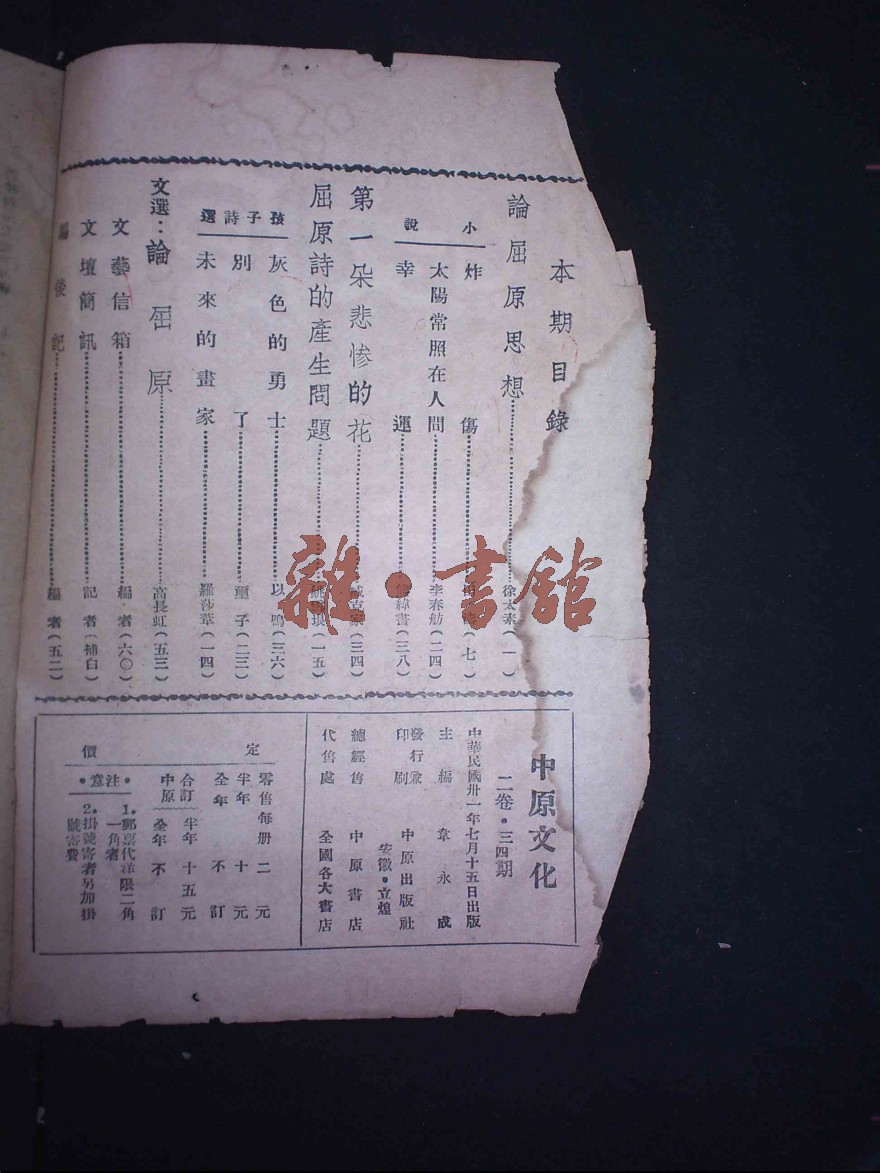 本期目錄
論屈原思想 徐太素(一)
小說
炸傷 (七)
太陽常照在人間 李春舫(二四)
幸運 緯書(三八)
第一朵悲慘的花 克家(三四)
屈原詩的產生問題 (一五)
孩子詩選
灰色的勇士 以鳴(三六)
別了 童子(二三)
未來的畫家 羅莎葦(一四)
文選：論屈原 高長虹(五三)
文藝信箱 編者(六〇)
文壇簡訊 記者(補白)
編後記 編者(五二)
雜·書館
中原文化
二卷·三四期
中華民國卅一年七月十五日出版
主編 韋永成
發行兼印刷 中原出版社
安徽·立煌
總經售 中原書店
代售處 全國各大書店
定價
零售每册二元
半年十元
全年不訂
合訂中原
半年十五元
全年不訂
·注意·
1.郵票代洋限二角
一角者
2.掛號寄者另加掛
號寄費